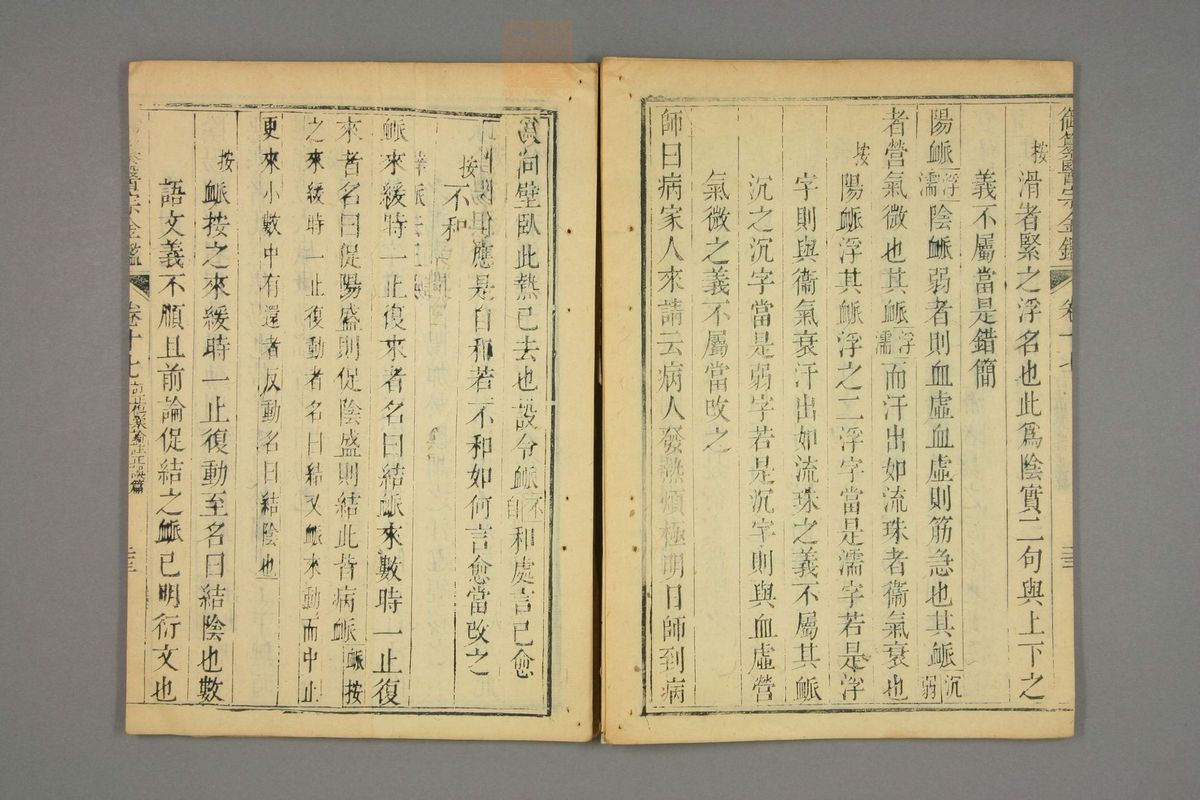 御纂醫宗金鑑 卷十七 三
按滑者緊之浮名也此爲陰實二句與上下之
義不屬當是錯簡
陽脈浮濡陰脈弱者則血虛血虛則筋急也其脈沉弱
者營氣微也其脈浮濡而汗出如流珠者衞氣衰也
按陽脈浮其脈浮之二浮字當是濡字若是浮
字則與衞氣衰汗出如流珠之義不屬其脈
沉之沉字當是弱字若是沉字則與血虛營
氣微之義不屬當改之
師曰病家人來請云病人發熱煩極明日師到病
爲向壁臥此熱已去也設令脈不自和處言已愈
按不和應是自和若不和如何言愈當改之
脈來緩時一止復來者名曰結脈來數時一止復
來者名曰促陽盛則促陰盛則結此皆病脈脈按
之來緩時一止復動者名曰結又脈來動而中止
更來小數中有還者反動名曰結陰也
按脈按之來緩時一止復動至名曰結陰也數
語文義不順且前論促結之脈已明衍文也
醫宗金鑑 卷十七 正誤篇